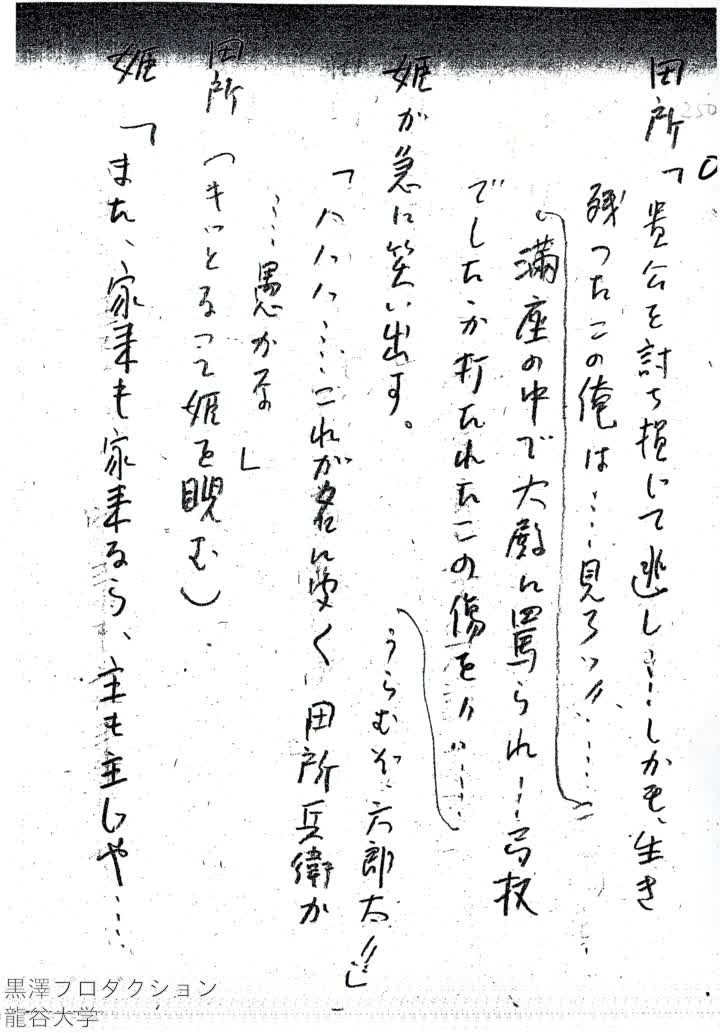 250
田所「貴公を討ち損じて逃し……しかも、生き
残ったこの俺は……見ろッ!!……
満座の中で大殿に罵られ……弓杖
でしたたか打たれたこの傷を!!……
うらむぞ、六郎太!!」
姫が急に笑い出す。
「ハハハ……これが名に聞く田所兵衛か
……愚かな」
田所（キッとなって姫を睨む）
姫「また、家来も家来なら、主も主じゃ……
黒澤プロダクション
龍谷大学